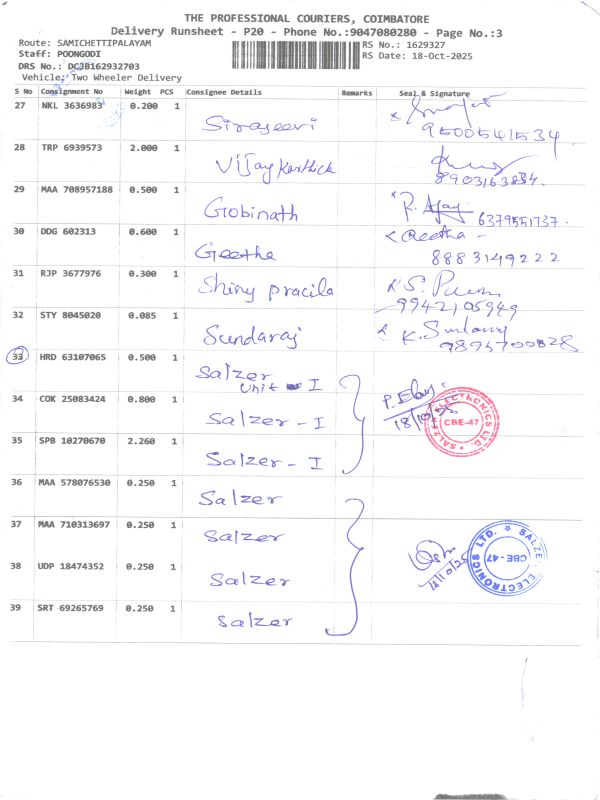 THE PROFESSIONAL COURIERS, COIMBATORE
Delivery Runsheet - P20 - Phone No.:9047080280 - Page No.:3
Route: SAMICHETTIPALAYAM
RS No.: 1629327
Staff: POONGODI
RS Date: 18-Oct-2025
DRS No.: DCJB162932703
Vehicle: Two Wheeler Delivery
S No Consignment No Weight PCS Consignee Details Remarks Seal & Signature
27 NKL 3636983 0.200 1 Sirajeevi
9500541534
28 TRP 6939573 2.000 1 Vijay Karthick
8903163834.
29 MAA 708957188 0.500 1 Gobinath R. Ajay
6379551737.
30 DDG 602313 0.600 1 Geetha Geetha -
8883149222
31 RJP 3677976 0.300 1 Shiny pracila
9942105949
32 STY 8045020 0.085 1 Sundaraj
9894700828
33 HRD 63107065 0.500 1 Salzer
Unit I
34 COK 25083424 0.800 1 Salzer - I
18/10/25
SALZER ELECTRONICS LTD. CBE-47
35 SPB 10270670 2.260 1 Salzer - I
36 MAA 578076530 0.250 1 Salzer
37 MAA 710313697 0.250 1 Salzer
38 UDP 18474352 0.250 1 Salzer
18/10/25
SALZER ELECTRONICS LTD. CBE-47
39 SRT 69265769 0.250 1 Salzer